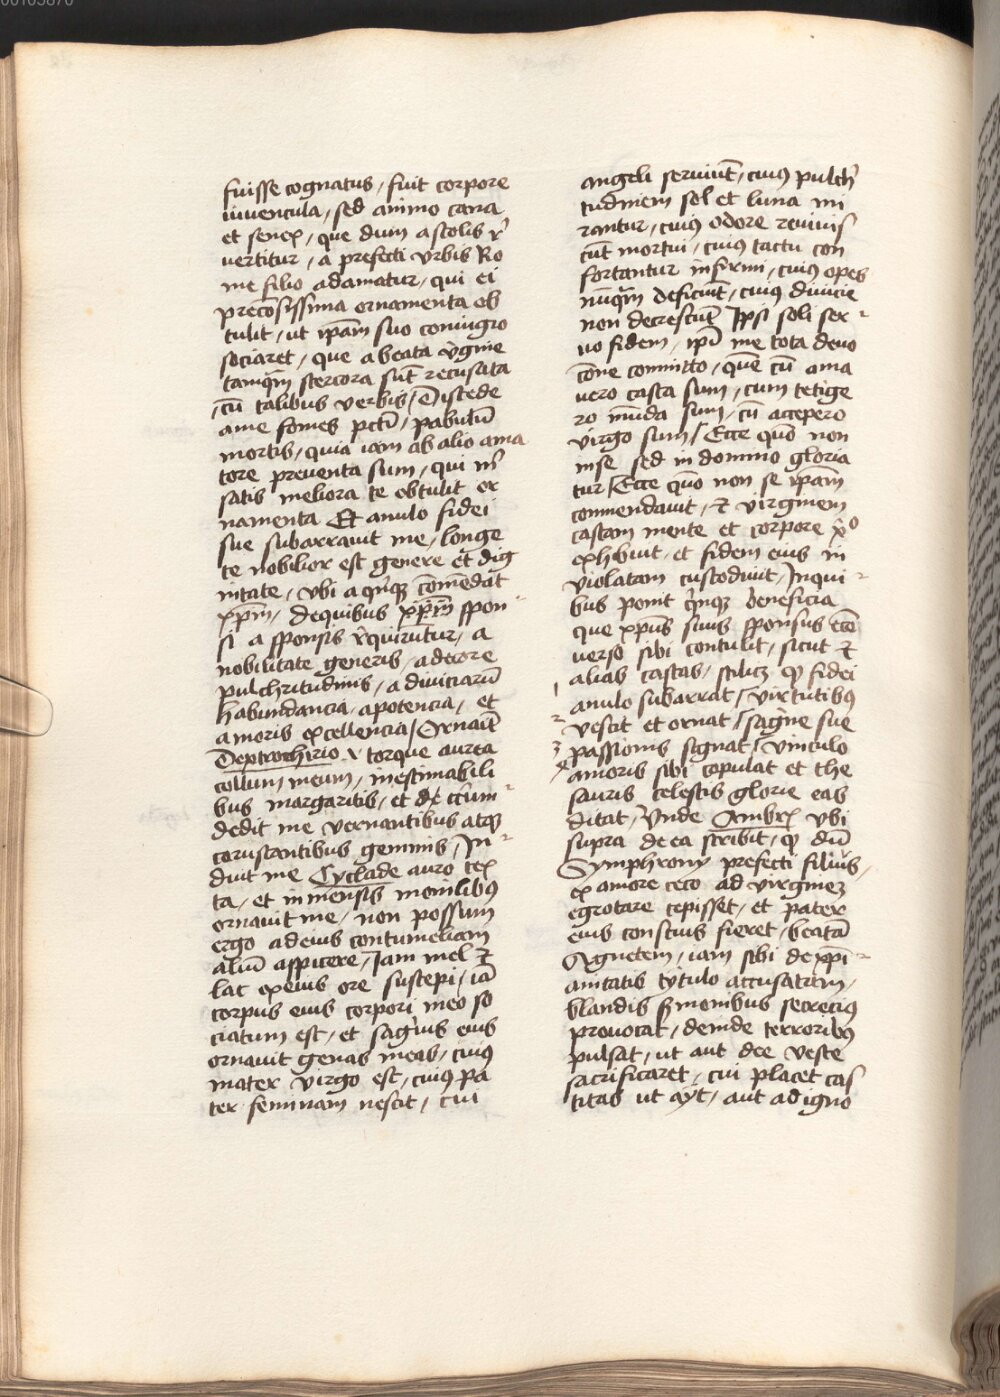 fuisse cognatus / fuit corpore
iuvencula / sed animo cana
et senex / que dum a scolis r̄
vertitur / a prefecti vrbis Ro
me filio adamatur / qui ei
precōsissima ornamenta ob
tulit / ut ip̄am suo coniugio
sociaret / que a beata v̄gine
tamq̄m stercora sūt recusata
/ cū talibus verbis / Discede
a me fomes pctī / pabulū
mortis / quia iam ab alio ama
tore preventa sum / qui m̄
satis meliora te obtulit or
namenta Et anulo fidei
sue subarravit me / longe
te nobilior est genere et dig
nitate / vbi a qn̄qꝫ com̄edat
xp̄m / de quibus xp̄m spon
si a sponsis r̄quirūtur / a
nobilitate generis / a decore
pulchritudinis / a diviciarū
habundancia / a potencia / et
amoris excellencia / Ornavit
Dextrochirio ⁊ torque aurea
collum meum / inestimabili
bus margaritis / et circum
dedit me vernantibus atqꝫ
coruscantibus gemmis / In
duit me Cyclade auro tex
ta / et in mensis monilibꝰ
ornavit me / non possum
ergo ad eius contumeliam
aliū aspicere / Iam mel ⁊
lac ex eius ore suscepi / iā
corpus eius corpori meo so
ciatum est / et saḡuis eius
ornavit genas meas / cuiꝰ
mater virgo est / cuiꝰ pa
ter feminam nescit / cui
angeli serviūt / cuiꝰ pulch̄
tudinem sol et luna mi
rantur / cuiꝰ odore revivis
cūt mortui / cuiꝰ tactu con
fortantur infirmi / cuiꝰ opes
nūq̄m deficiūt / cuiꝰ divicie
non decrescūt Ipsi soli ser
vo fidem / ip̄i me tota devo
cōne committo / quē cū ama
vero casta sum / cum tetige
ro mūda sum / cū accepero
virgo sum / Ecce quō non
in se sed in domino gloria
tur / Ecce quō non se ip̄am
commendavit / ⁊ virginem
castam mente et corpore x̄o
exhibuit / et fidem eius in
violatam custodivit / In qui
bus ponit qn̄qꝫ beneficia
que xp̄us suus sponsus ecc̄
verso sibi contulit / sicut ⁊
alias castas / scilicꝫ ꝙ fidei
1 anulo subarrat / virtutibꝰ
2 vestit et ornat / saḡine sue
3 passionis signat / vinculo
4 amoris sibi copulat et the
sauris celestis glorie eas
ditat / Vnde Ambrꝰ vbi
supra de ea scribit / ꝙ dū
Symphrony prefecti filius /
ex amore ceco ad virginē
egrotare cepisset / et pater
eius conscius fieret / beatā
Agnetem / iam sibi de xp̄i
anitatis tytulo accusatam /
blandis s̄monibus secreciꝰ
provocat / deinde terroribꝰ
pulsat / ut aut dee veste
sacrificaret / cui placet cas
titas ut ayt / aut ad igno